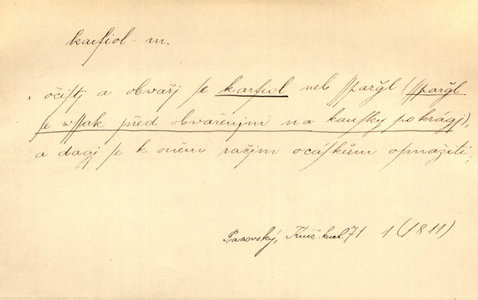 karfiol m.
očistj a obwařj se karfiol neb ssparžl (ssparžl
se wssak před obwařenjm na kausky pokrágj),
a dagj se k oněm račjm ocáskům opražiti.
1 (1811)